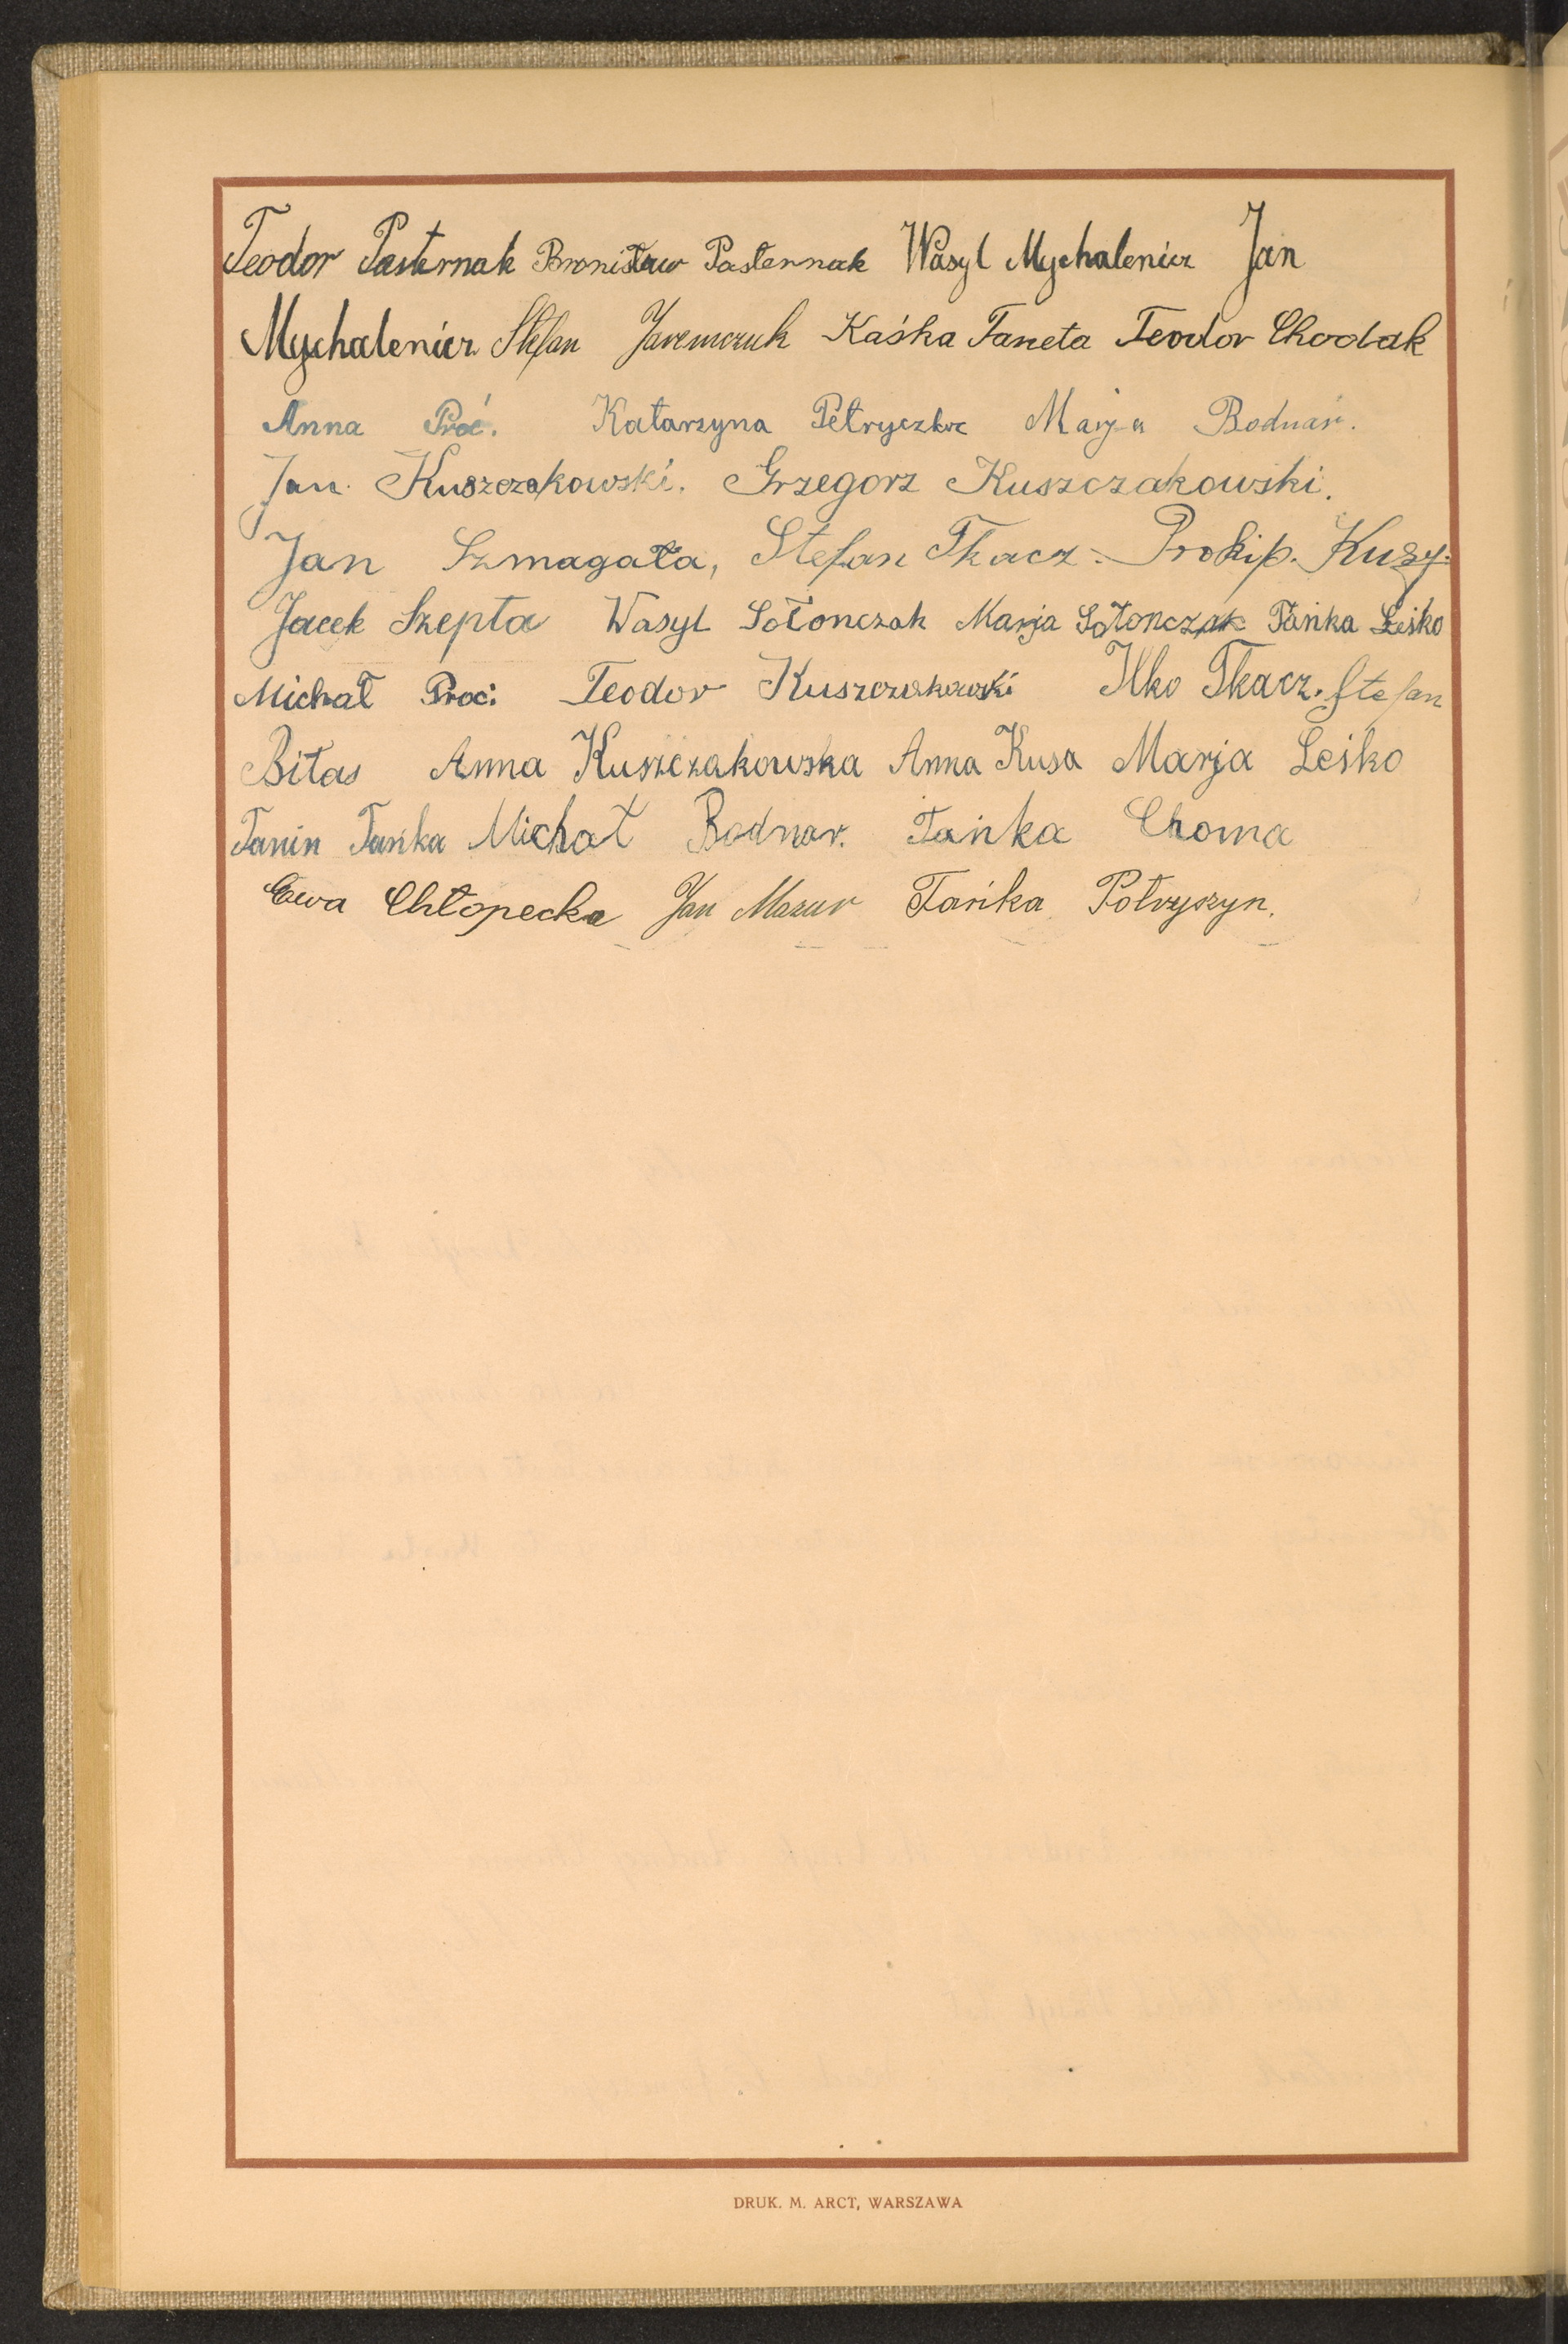 Teodor Pasternak Bronisław Pasternak Wasyl Mychalenicz Jan
Mychalenicz Stefan Jaremczuk Kaśka Taneta Teodor Chodak
Anna Proć. Katarzyna Petryczka Marja Bodnar.
Jan Kuszczakowski. Grzegorz Kuszczakowski.
Jan Szmagała, Stefan Tkacz. Prokip. Kusy.
Jacek Szepta Wasyl Sołonczak Marja Sołonczak Tańka Leśko
Michał Proć Teodor Kuszczakowski Ilko Tkacz. Stefan
Biłas Anna Kuszczakowska Anna Kusa Marja Leśko
Tanin Tańka Michał Bodnar. Tańka Choma
Ewa Chłopecka Jan Mazur Tańka Potryszyn.
DRUK. M. ARCT, WARSZAWA